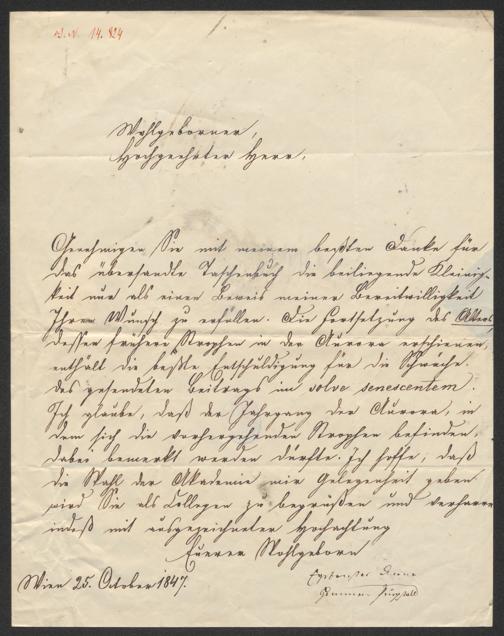 I. N. 14.824
Wohlgeborner,
Hochgeehrter Herr,
Genehmigen Sie mit meinem beßten Danke für
das übersandte Taschenbuch die beiliegende Kleinig-
keit nur als einen Beweis meiner Bereitwilligkeit
Ihren Wunsch zu erfüllen. Die Fortsetzung des Alters
dessen frühere Strophen in der Aurora erschienen,
enthält die beßte Entschuldigung für die Schwäche
des gesendeten Beitrags im solve senescentem.
Ich glaube, daß der Jahrgang der Aurora, in
dem sich die vorhergehenden Strophen befinden,
dabei bemerkt werden dürfte. Ich hoffe, daß
die Wahl der Akademie mir Gelegenheit geben
wird Sie als Collegen zu begrüßen und verharre
indeß mit ausgezeichneter Hochachtung
Euerer Wohlgeborn
Wien 25. October 1847.